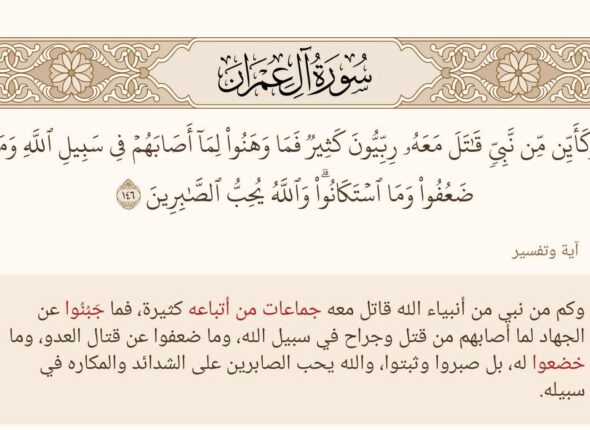 سُورَةُ آلِ عِمۡرَانَ
كَأَيِّن مِّن نَّبِيّٖ قَٰتَلَ مَعَهُۥ رِبِّيُّونَ كَثِيرٞ فَمَا وَهَنُواْ لِمَآ أَصَابَهُمۡ فِي سَبِيلِ ٱللَّهِ وَمَا
ضَعُفُواْ وَمَا ٱسۡتَكَانُواْۗ وَٱللَّهُ يُحِبُّ ٱلصَّٰبِرِينَ ١٤٦
آية وتفسير
وكم من نبي من أنبياء الله قاتل معه جماعات من أتباعه كثيرة، فما جَبُنُوا عن
الجهاد لما أصابهم من قتل وجراح في سبيل الله، وما ضعفوا عن قتال العدو، وما
خضعوا له، بل صبروا وثبتوا، والله يحب الصابرين على الشدائد والمكاره في
سبيله.